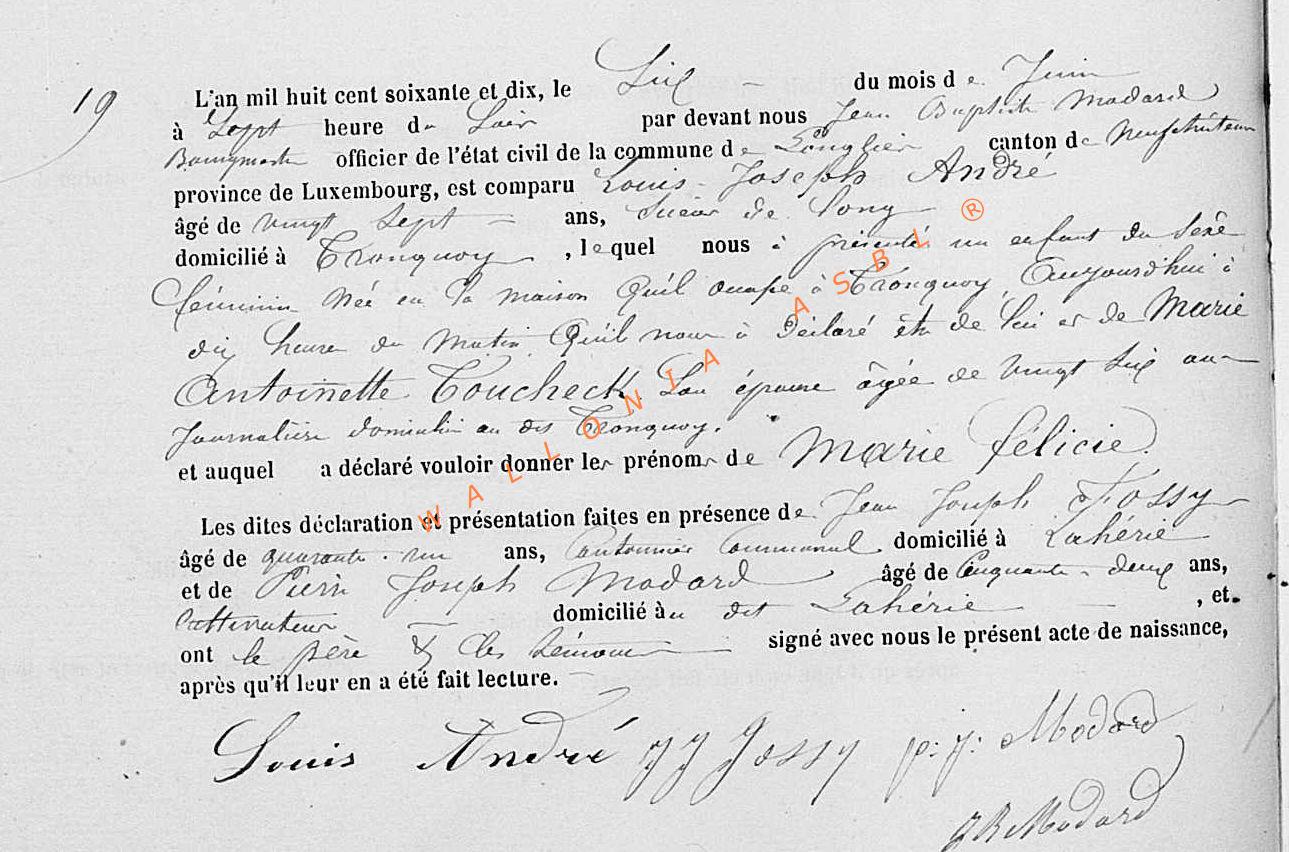 19
L'an mil huit cent soixante et dix, le Six du mois de Juin
à Sept heure du Soir par devant nous Jean Baptiste Modard
Bourgmestre officier de l'état civil de la commune de Longlier canton de Neufchâteau
province de Luxembourg, est comparu Louis Joseph André
âgé de vingt sept ans, Sieur de Long
domicilié à Tronquoy, lequel nous à présenté un enfant du Sexe
féminin Née en la maison qu'il occupe à Tronquoy, Aujourd'hui à
dix heure du Matin Qu'il nous à Déclaré être de lui et de Marie
Antoinette Toucheck Son épouse âgée de vingt Six ans
Journalière domiciliée au dit Tronquoy.
et auquel a déclaré vouloir donner les prénoms de Marie félicie
Les dites déclaration et présentation faites en présence de Jean Joseph Fossy
âgé de quarante-un ans, Cantonnier Communal domicilié à Lahérie
et de Pierre Joseph Modard âgé de Cinquante-deux ans,
Cultivateur domicilié au dit Lahérie, et
ont le père & les témoins signé avec nous le présent acte de naissance,
après qu'il leur en a été fait lecture.
Louis André JJ Jossy p: J: Modard
JB Modard
WALLONIA ASBL ®